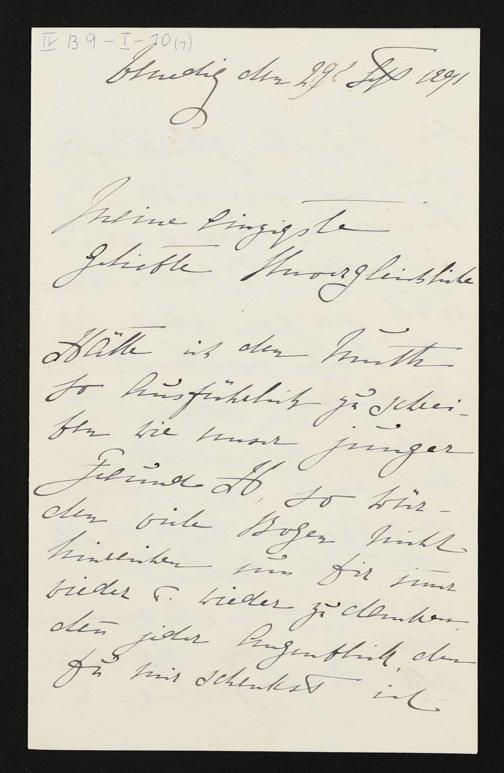 IV B 9 - I - 20 (1)
Venedig den 29t Sept 1891
Meine einzigste
geliebte Unvergleichliche
Hätte ich den Muth
so ausführlich zu schrei-
ben wie unser junger
Freund H, so wür-
den viele Bogen nicht
hinreichen um Dir immer
wieder u. wieder zu danken
den jeder Augenblick, den
Du mir schenkst ist